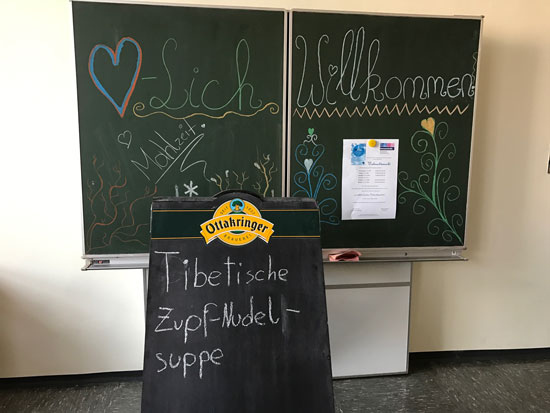 -Lich Willkommen
Mahlzeit
Ottakringer
Tibetische
Zupf-Nudel-
suppe